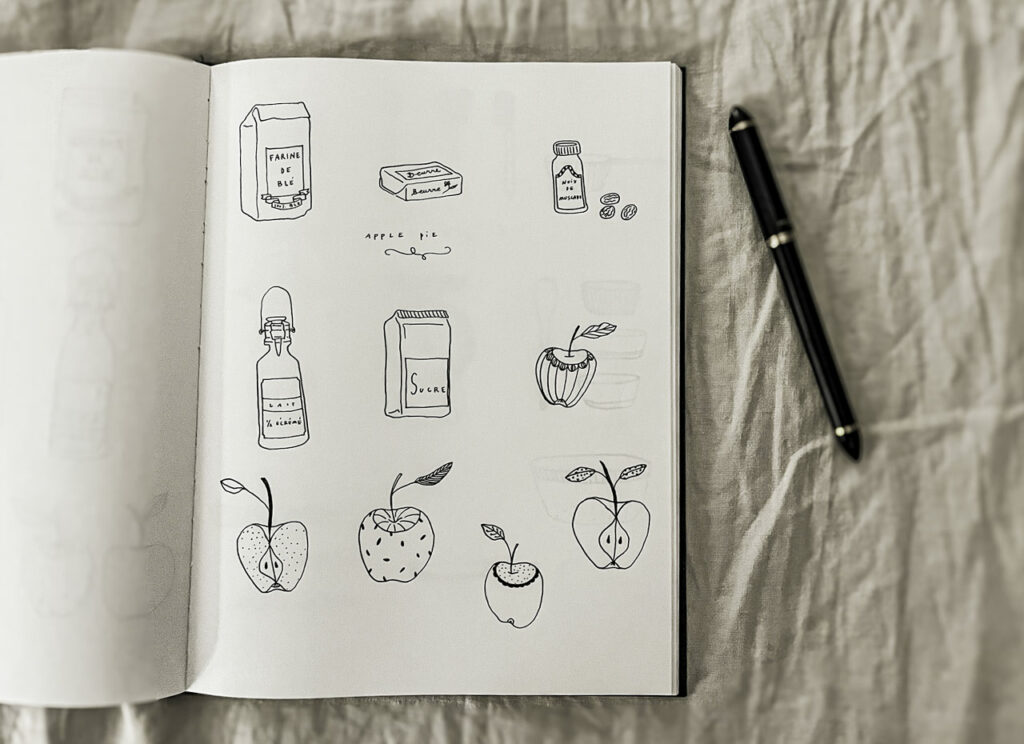 FARINE
DE
BLÉ
Beurre
Beurre
NOIX
DE
MUSCADE
APPLE PiE
LAIT
½ ÉCRÉMÉ
SUCRE